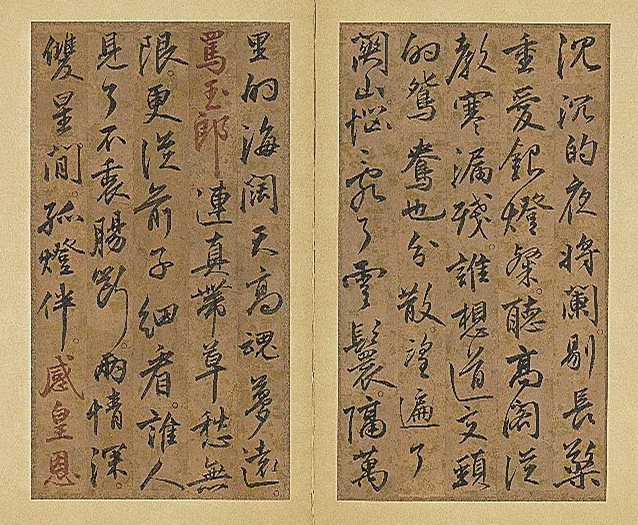 沉沉的夜将闌剔長檠
重愛銀燈粲聽高閣從
教寒漏殘。誰想道交頸
的鴛鴦也分散。望遍了
關山惱亂了雲鬟。隔萬
里的海闊天高魂夢遠。
罵玉郎連真帶草愁無
限。更從前子細看。誰人
見了不裏腸斷。兩情深
雙星間孤燈伴。感皇恩